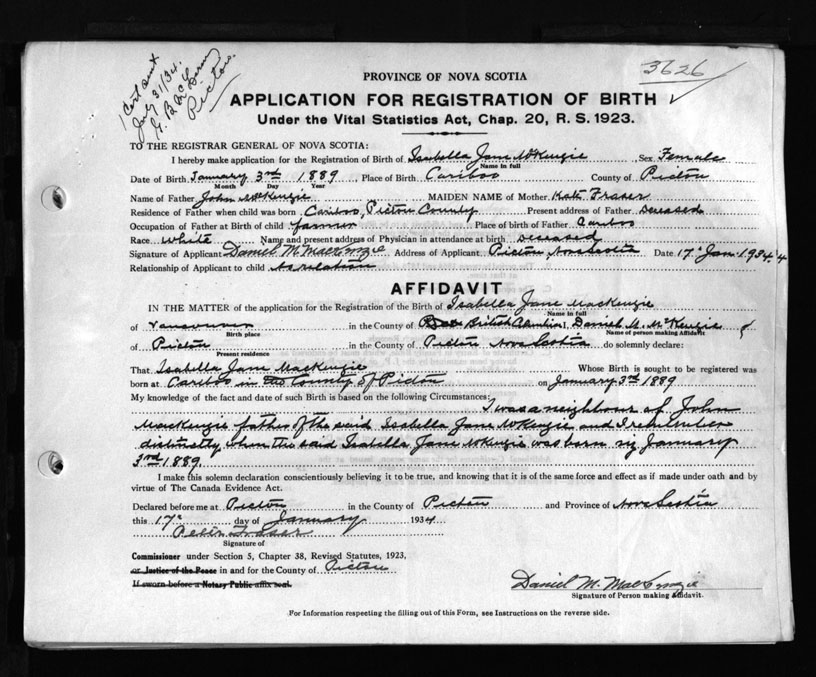 1 Cert sent
July 31/34.
Pictou.
3626
PROVINCE OF NOVA SCOTIA
APPLICATION FOR REGISTRATION OF BIRTH
Under the Vital Statistics Act, Chap. 20, R. S. 1923.
TO THE REGISTRAR GENERAL OF NOVA SCOTIA:
I hereby make application for the Registration of Birth of Isabella Jane McKenzie Sex Female
Name in full
Date of Birth January 3rd 1889 Place of Birth Cariboo County of Pictou
Month Day Year
Name of Father John McKenzie MAIDEN NAME of Mother Kate Fraser
Residence of Father when child was born Cariboo, Pictou County Present address of Father Deceased
Occupation of Father at Birth of child farmer Place of birth of Father Cariboo
Race White Name and present address of Physician in attendance at birth Deceased
Signature of Applicant Daniel M. MacKenzie Address of Applicant Pictou Nova Scotia Date 17" Jan. 1934
Relationship of Applicant to child No relation
AFFIDAVIT
IN THE MATTER of the application for the Registration of the Birth of Isabella Jane MacKenzie
Name in full
of Vancouver in the County of British Columbia I, Daniel M. McKenzie
Birth place Name of person making Affidavit
of Pictou in the County of Pictou Nova Scotia do solemnly declare:
Present residence
That Isabella Jane MacKenzie Whose Birth is sought to be registered was
born at Cariboo in the County of Pictou on January 3rd 1889
My knowledge of the fact and date of such Birth is based on the following Circumstances:
I was a neighbour of John
MacKenzie father of the said Isabella Jane McKenzie and I remember
distinctly when the said Isabella Jane McKenzie was born viz January
3rd 1889.
I make this solemn declaration conscientiously believing it to be true, and knowing that it is of the same force and effect as if made under oath and by
virtue of The Canada Evidence Act.
Declared before me at Pictou in the County of Pictou and Province of Nova Scotia
this 17" day of January 1934
Peter Fraser
Signature of
Commissioner under Section 5, Chapter 38, Revised Statutes, 1923,
or Justice of the Peace in and for the County of Pictou
If sworn before a Notary Public affix seal.
Daniel M. MacKenzie
Signature of Person making Affidavit.
For Information respecting the filling out of this Form, see Instructions on the reverse side.